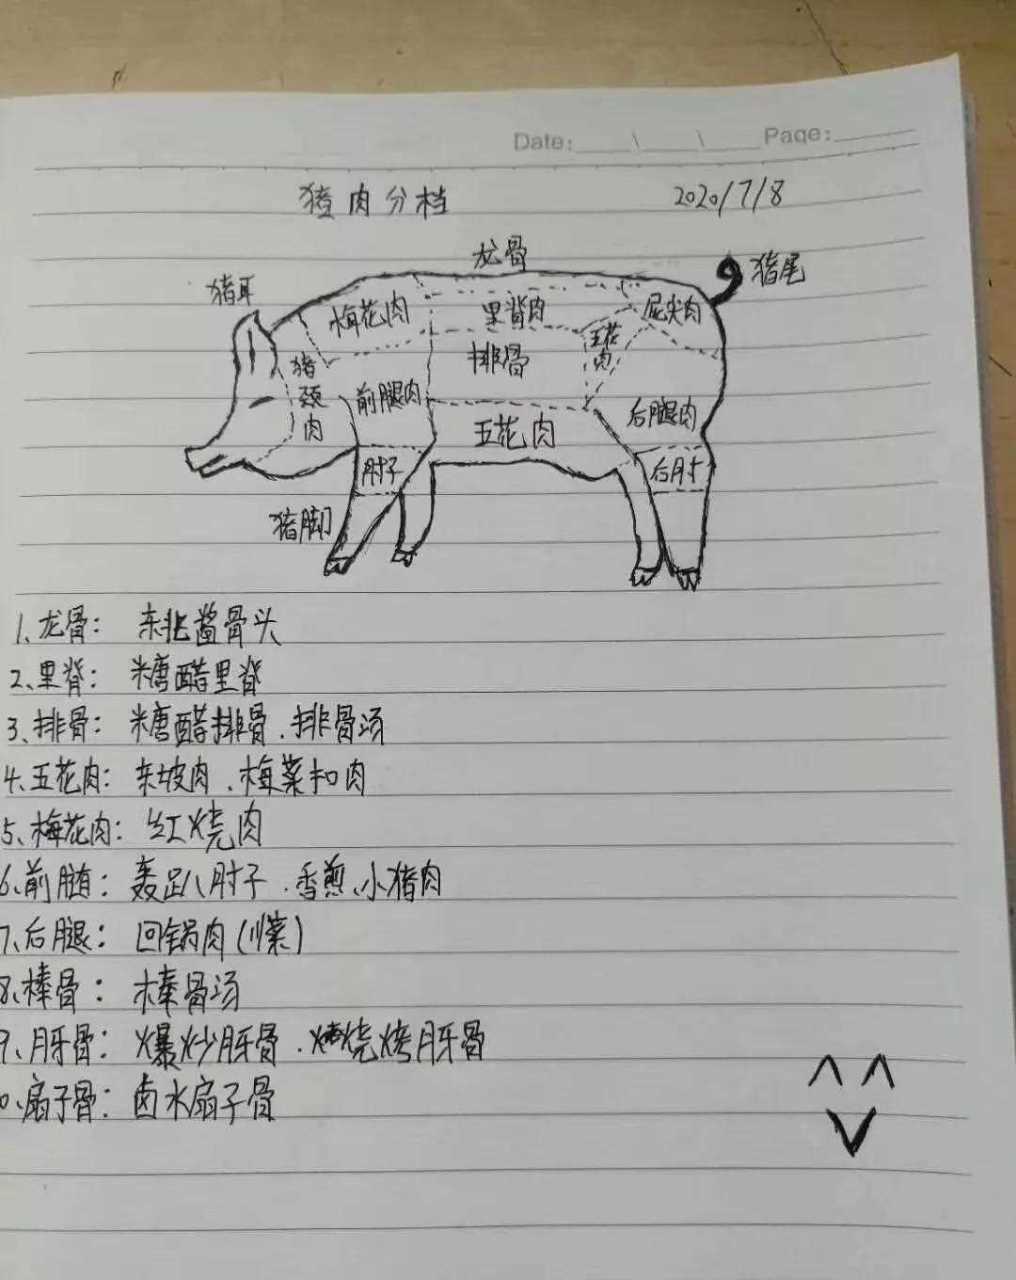 Date: \ \ Page:
猪肉分档 2020/7/8
龙骨
猪尾
猪耳
梅花肉 里脊肉 屁尖肉
五花肉
排骨
猪颈肉
前腿肉 后腿肉
五花肉
肘子 后肘
猪脚
1、龙骨: 东北酱骨头
2、里脊: 糖醋里脊
3、排骨: 糖醋排骨、排骨汤
4、五花肉: 东坡肉、梅菜扣肉
5、梅花肉: 红烧肉
6、前 : 轰趴肘子、香煎、小猪肉
7、后腿: 回锅肉(川菜)
8、棒骨: 棒骨汤
9、月牙骨: 爆炒月牙骨、烧烤月牙骨
0、扇子骨: 卤水扇子骨